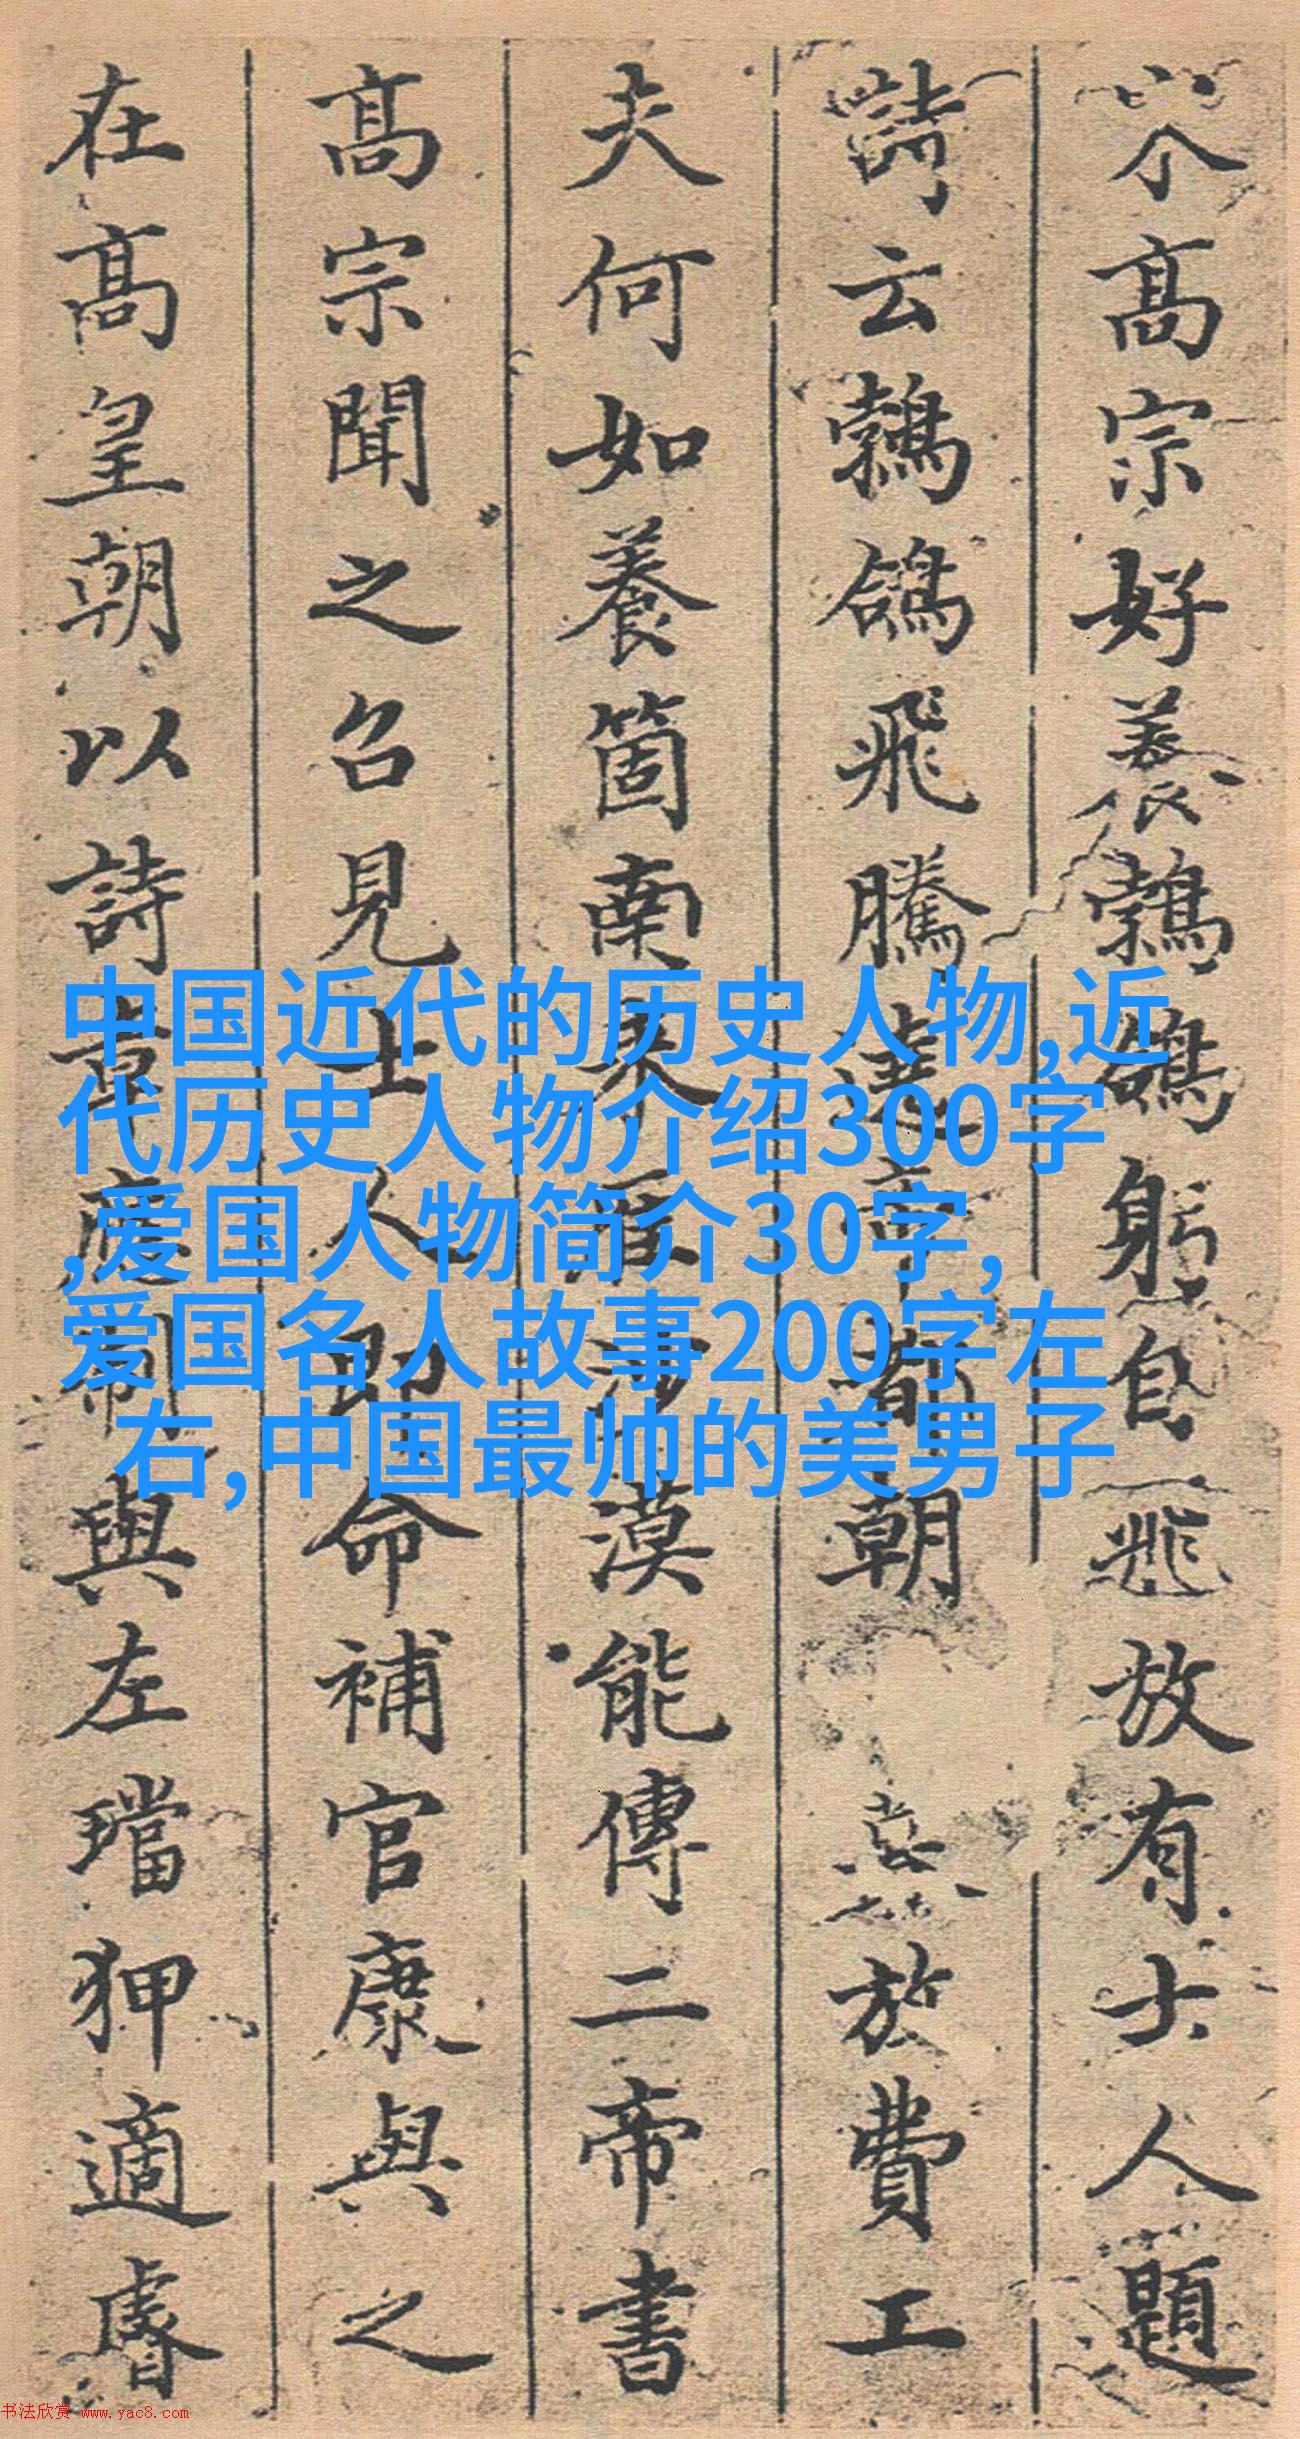 高宗好養鵓鴿躬自飛放有士人題
詩云鵓鴿飛騰遶帝都朝暮放費工
夫何如養箇南來鴈沙漠能傳二帝書
高宗聞之召見士人即命補官康與之
在高皇朝以詩章應制與左璫狎適睿
中国近代的历史人物,近
代历史人物介绍300字
,爱国人物简介30字,
爱国名人故事200字左
右,中国最帅的美男子
书法欣赏 www.yac8.com